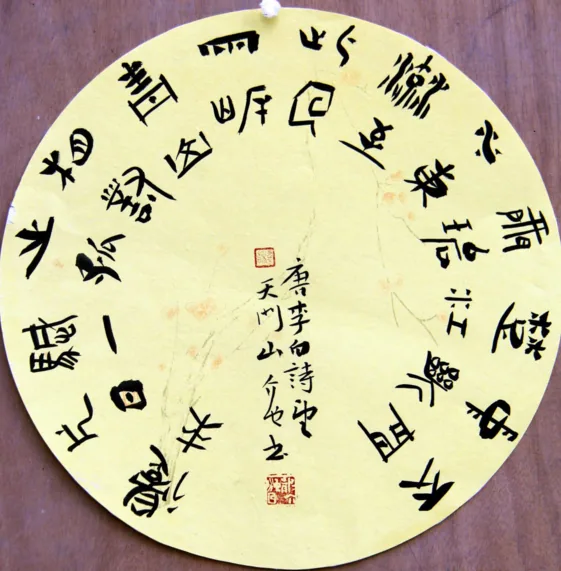 天門中斷楚江開碧水東流至此回兩岸青山相對出孤帆一片日邊來
唐李白詩望
天门山 介也书